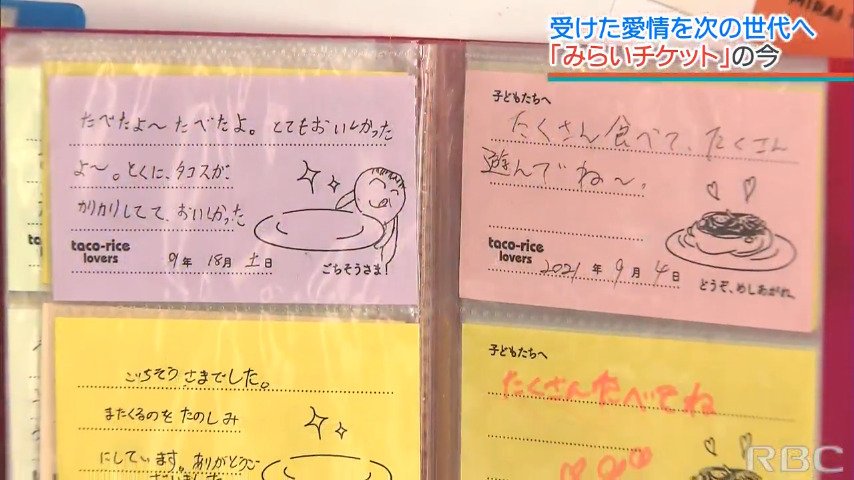 受けた愛情を次の世代へ
「みらいチケット」の今
たべたよ〜たべたよ。とてもおいしかった
よ〜。とくに、タコスが
カリカリしてて、おいしかった
taco-rice
lovers
9年 18月 土日
ごちそうさま!
子どもたちへ
たくさん食べて、たくさん
遊んでね〜。
taco-rice
lovers
2021年 9月 4日
どうぞ、めしあがれ。
ごちそうさまでした。
またくるのをたのしみ
にしています。ありがとうご
ざいました
子どもたちへ
たくさんたべてね
RBC